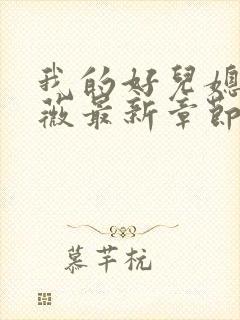 我的好兒媳
薇最新章節
慕芊杭